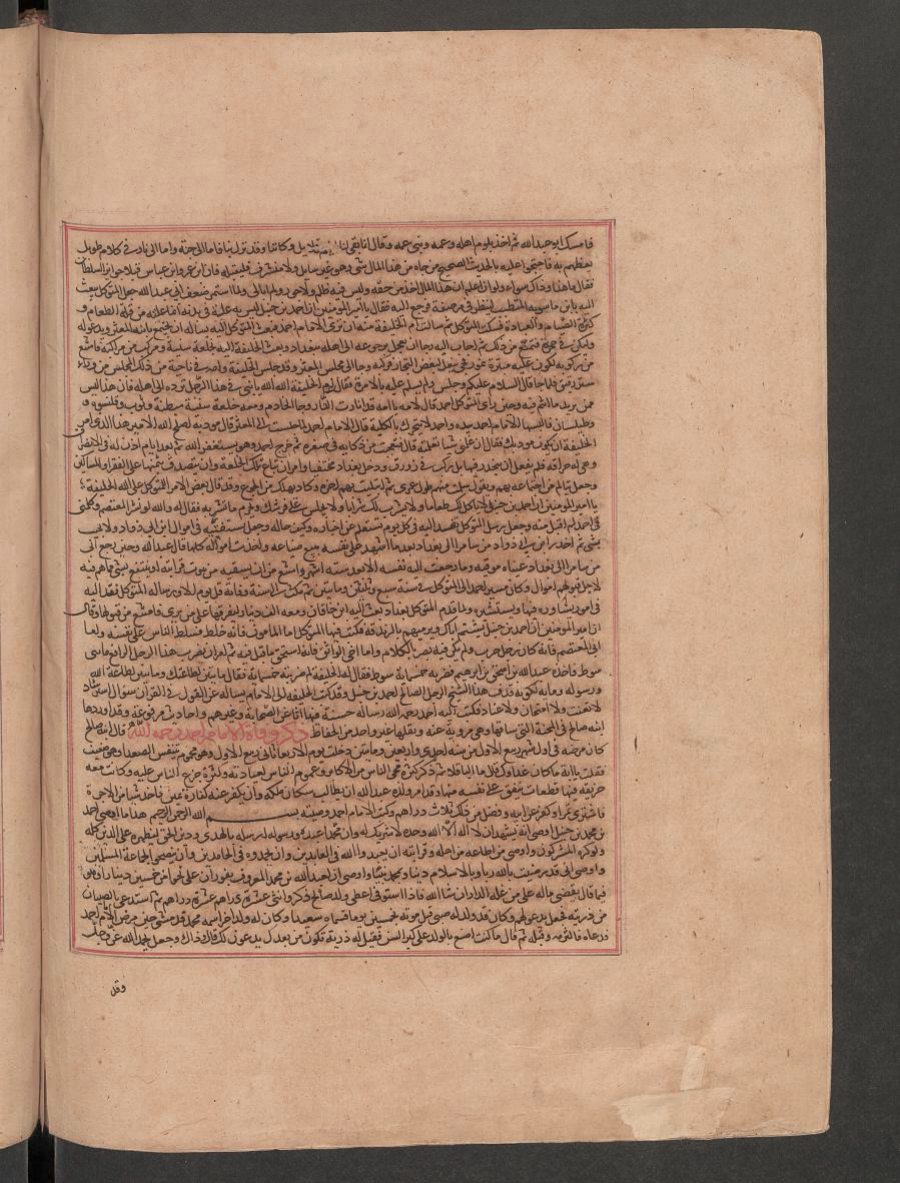 فامسك ابو عبد الله ثم اخذ يلوم اهله وعمه وبني عمه وقال انما بقي لنا ايام قلايل وكاننا وقد نزل بنا فاما الى جنة واما الى نار في كلام طويل
يعظهم به فاحتجوا عليه بالحديث الصحيح من جاه من هذا المال شي وهو غير سايل ولا مشرف فليقبله فان ابن عمر وابن عباس قبلا جوايز السلطان
فقال ما هذا وذاك سواء ولو اني اعلم ان هذا المال اخذ من حقه وليس فيه ظلم ولا جور لم ابالي ولما استمر ضعف ابي عبد الله جعل المتوكل يبعث
اليه بابن ماسويه المتطبب لينظر في مرضه فرجع اليه فقال يا امير المؤمنين ان احمد بن حنبل ليس به علة في بدنه انما علته من قلة الطعام و
كثرة الصيام والعبادة فسكت المتوكل ثم سالت ام الخليفة منه ان ترى الامام احمد فبعث المتوكل اليه يساله ان يجتمع بابنه المعتز ويدعو له
وليكن في حجره فتمنع من ذلك ثم اجاب اليه رجا ان يعجل برجوعه الى اهله ببغداد وبعث الخليفة اليه بخلعة سنية ومركب من مراكبه فامتنع
من ركوبه لكون عليه ميثرة نمور فجي ببغل لبعض التجار فركبه وجا الى مجلس المعتز وقد جلس الخليفة وامه في ناحية من ذلك المجلس من وراء
ستر رقيق فلما جا قال السلام عليكم وجلس ولم يسلم عليه بالامرة فقالت ام الخليفة الله الله يا بني في هذا الرجل ترده الى اهله فان هذا ليس
ممن يريد ما انتم فيه وحين راى المتوكل احمد قال لامه يا امه قد انارت الدار وجا الخادم ومعه خلعة سنية مبطنة وثوب وقلنسوة و
وطيلسان فالبسها الامام احمد بيده واحمد لا يتحرك بالكلية قال الامام احمد لما جلست الى المعتز قال مودبه اصلح الله الامير هذا الذي امر
الخليفة ان يكون مودبك فقال ان علمني شيا تعلمته قال فتعجبت من ذكايه في صغره ثم خرج احمد وهو يستغفر الله ثم بعد ايام اذن له في الانصراف
وهيئ له حراقة فلم يقبل ان ينحدر فيها بل ركب في زورق ودخل بغداد مختفيا وامر ان تباع تلك الخلعة وان يتصدق بثمنها على الفقرا والمساكين
وجعل يتالم من اجتماعه بهم ويقول سلمت منهم طول عمري ثم ابتليت بهم في اخره وكاد يهلك من الجوع وقد قال بعض الامرا للمتوكل على الله الخليفة
يا امير المؤمنين ان احمد بن حنبل لا ياكل لك طعاما ولا يشرب لك شرابا ولا يجلس على فرشك ويحرم ما تشربه فقال له والله لو نشر المعتصم وكلمني
في احمد لم اقبل منه وجعل رسل المتوكل تفد اليه في كل يوم تستعلم عن اخباره وكيف حاله وجعل يستفتيه في اموال ابن ابي دواد ولا يجيب
بشي ثم اخذ راس ابن ابي دواد من سامرا الى بغداد بعد ما اشهد على نفسه ببيع ضياعه واخذت امواله كلها قال عبد الله وحين رجع ابي
من سامرا الى بغداد عيناه موقيه وما رجعت اليه نفسه الا بعد ستة اشهر وامتنع من ان يدخل بيوت قرابته او ينتفع بشي مما هم فيه
لاجل قبولهم اموال وكان مسير احمد الى المتوكل في سنة سبع وثلثين ومايتين ثم مكث الى سنة وفاته قل يوم الا ورسالة المتوكل تنفذ اليه
في امور يشاوره فيها ويستشيره ولما قدم المتوكل بغداد بعث اليه ابن خاقان ومعه الف دينار ليفرقها على من يرى فامتنع من قبولها وقال
ان امير المؤمنين ان احمد بن حنبل يشتم اباك ويرميهم بالزندقة فكتب فيها المتوكل اما المامون فانه خلط فسلط الناس على نفسه واما
ابي المعتصم فانه كان رجل حرب ولم يكن فيه بصر بالكلام واما اخي الواثق فانه استحق ما قيل فيه ثم امر ان يضرب هذا الرجل الرافع مايتي
سوط فاخذه عبد الله بن اسحق بن ابرهيم فضربه خمسماية سوط فقال له الخليفة لم ضربته خمسماية فقال مايتين لطاعتك ومايتين لطاعة الله
ورسوله ومايه لكونه قذف هذا الشيخ الرجل الصالح احمد بن حنبل وقد كتب الخليفة الى الامام يساله عن القول في القران سوال استرشاد
لا تعنت ولا امتحان ولا عناد فكتب اليه احمد رحمه الله رسالة حسنة فيها اثار عن الصحابة وغيرهم واحاديث مرفوعة وقد اوردها
ابنه صالح في المحنة التي ساقها وهي مروية عنه ونقلها غير واحد من الحفاظ ذكر وفاة الامام احمد رحمه الله قال ابنه صالح
كان مرضه في اول شهر ربيع الاول من سنة احدى واربعين ومايتين ودخلت يوم الاربعا ثاني ربيع الاول وهو محموم يتنفس الصعدا وهو ضعيف
فقلت يا ابة ما كان غداوك قال ما الباقلا ثم ذكر كثرة مجي الناس من الاكابر وعموم الناس لعيادته وكثرة جزع الناس عليه وكانت معه
خريقة فيها قطيعات ينفق على نفسه منها وقد امر ولده عبد الله ان يطالب سكان ملكه وان يكفر عنه كفارة يمين فاخذ شيا من الاجرة
فاشترى تمرا وكفر عن ابيه وفضل من ذلك ثلاث دراهم وكتب الامام احمد وصيته بسم الله الرحمن الرحيم هذا ما اوصى احمد
بن محمد بن حنبل اوصى انه يشهد ان لا اله الا الله وحده لا شريك له وان محمدا عبده ورسوله ارسله بالهدى ودين الحق ليظهره على الدين كله
ولو كره المشركون واوصى من اطاعه من اهله وقرابته ان يعبدوا الله في العابدين وان يحمدوه في الحامدين وان ينصحوا لجماعة المسلمين
واوصى اني قد رضيت بالله ربا وبالاسلام دينا وبمحمد نبيا واوصي ان لعبد الله بن محمد المعروف بفوران على نحوا من خمسين دينارا وهو
فيما قال يقضي ماله علي من غلة الدار ان شا الله فاذا استوفى اعطي ولد صالح كل ذكر وانثى عشرة دراهم عشرة دراهم ثم استدعى بالصبيان
من ذريته فجعل يدعو لهم وكان قد ولد له صبي قبل موته بخمسين يوما فسماه سعيدا وكان له ولد اخر اسمه محمد قد مشى حين مرض الامام احمد
فدعاه فالتزمه وقبله ثم قال ما كنت اصنع بالولد على كبر السن فقيل له ذرية تكون من بعدك يدعون لك قال وذاك وجعل يحمد الله عز وجل
وقد